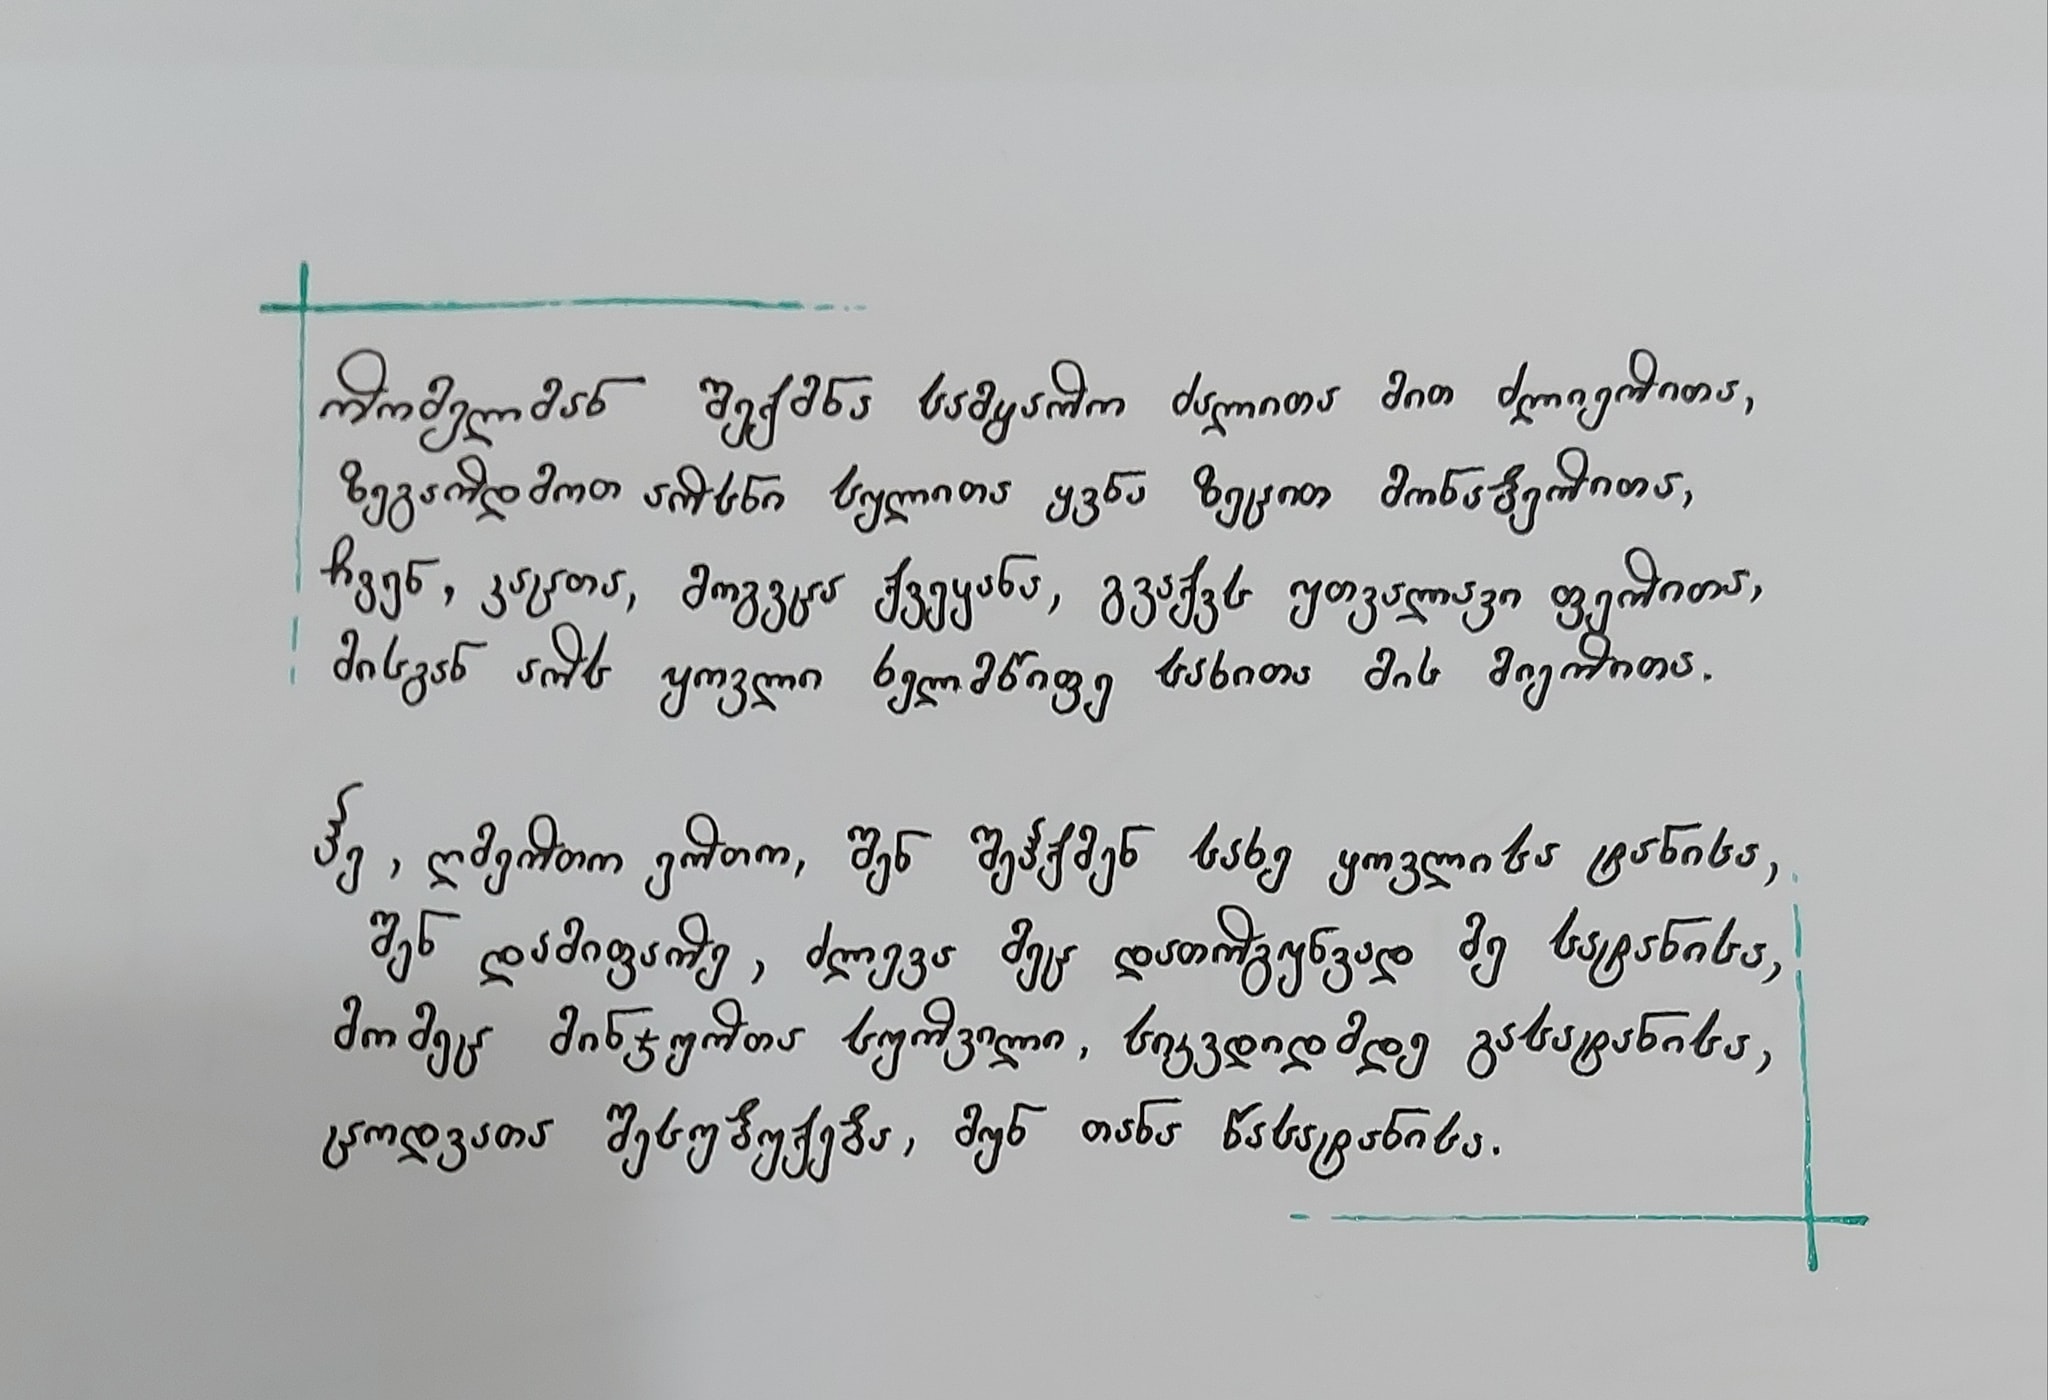 რომელმან შექმნა სამყარო ძალითა მით ძლიერითა,
ზეგარდმოთ არსნი სულითა ყვნა ზეცით მონაბერითა,
ჩვენ, კაცთა, მოგვცა ქვეყანა, გვაქვს უთვალავი ფერითა,
მისგან არს ყოვლი ხელმწიფე სახითა მის მიერითა.
ჰე, ღმერთო ერთო, შენ შეჰქმენ სახე ყოვლისა ტანისა,
შენ დამიფარე, ძლევა მეც დათრგუნვად მე სატანისა,
მომეც მინჯურთა სურვილი, სიკვდიდმდე გასატანისა,
ცოდვათა შესუბუქება, მუნ თანა წასატანისა.